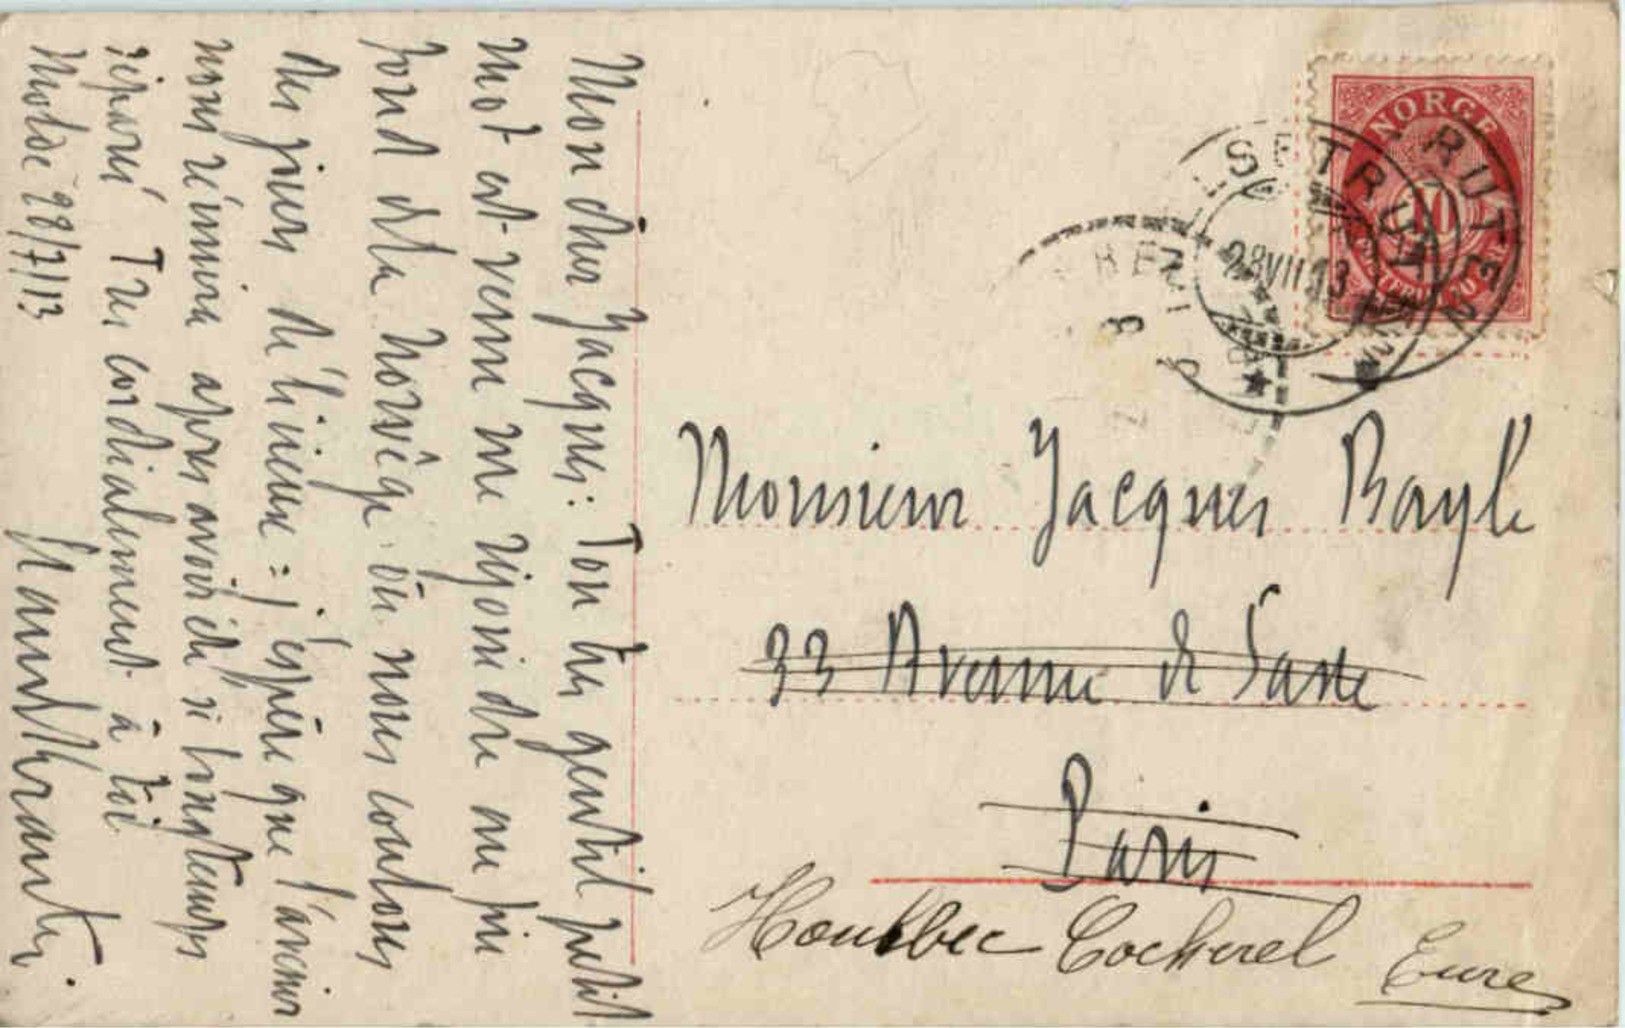 Mon cher Jacques: Ton très gentil petit
mot est venu me rejoindre au fin
fond de la Norvège où nous coulons
des jours délicieux = j'espère que l'avenir
nous réunira après avoir été si longtemps
séparé Très cordialement à toi
Molde 28/7/13
NORGE
10
28 VII 13
RUTEN
Monsieur Jacques Bayle
33 Avenue de Saxe
Paris
Houlbec Cocherel
Eure